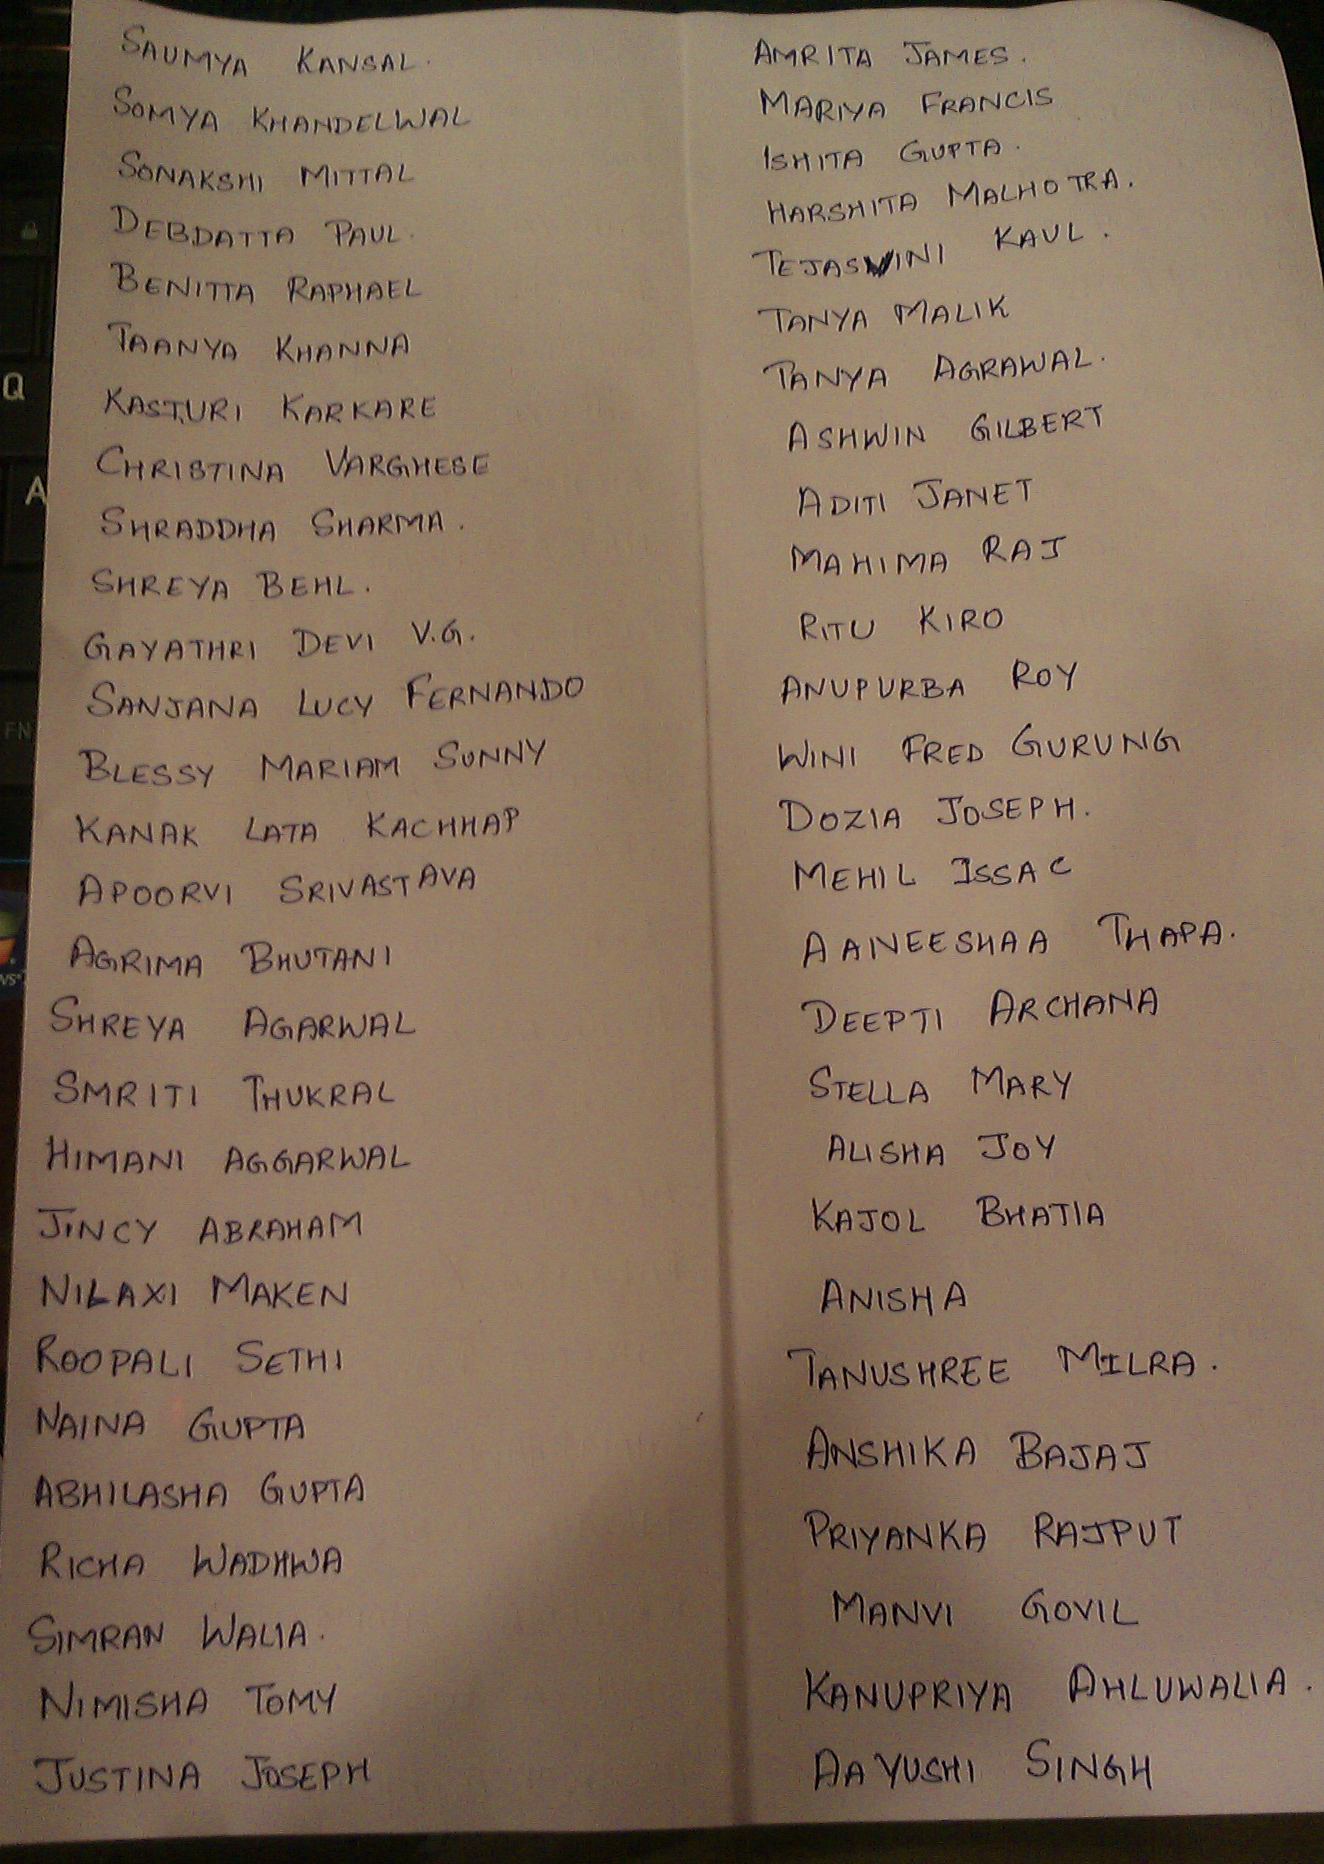 SAUMYA KANSAL.
SOMYA KHANDELWAL
SONAKSHI MITTAL
DEBDATTA PAUL.
BENITTA RAPHAEL
TAANYA KHANNA
KASTURI KARKARE
CHRISTINA VARGHESE
SHRADDHA SHARMA.
SHREYA BEHL.
GAYATHRI DEVI V.G.
SANJANA LUCY FERNANDO
BLESSY MARIAM SUNNY
KANAK LATA KACHHAP
APOORVI SRIVASTAVA
AGRIMA BHUTANI
SHREYA AGARWAL
SMRITI THUKRAL
HIMANI AGGARWAL
JINCY ABRAHAM
NILAXI MAKEN
ROOPALI SETHI
NAINA GUPTA
ABHILASHA GUPTA
RICHA WADHWA
SIMRAN WALIA.
NIMISHA TOMY
JUSTINA JOSEPH
AMRITA JAMES.
MARIYA FRANCIS
ISHITA GUPTA.
HARSHITA MALHOTRA.
TEJASWINI KAUL.
TANYA MALIK
TANYA AGRAWAL.
ASHWIN GILBERT
ADITI JANET
MAHIMA RAJ
RITU KIRO
ANUPURBA ROY
WINI FRED GURUNG
DOZIA JOSEPH.
MEHIL ISSAC
AANEESHAA THAPA.
DEEPTI ARCHANA
STELLA MARY
ALISHA JOY
KAJOL BHATIA
ANISHA
TANUSHREE MILRA.
ANSHIKA BAJAJ
PRIYANKA RAJPUT
MANVI GOVIL
KANUPRIYA AHLUWALIA.
AAYUSHI SINGH
Q
A
FN